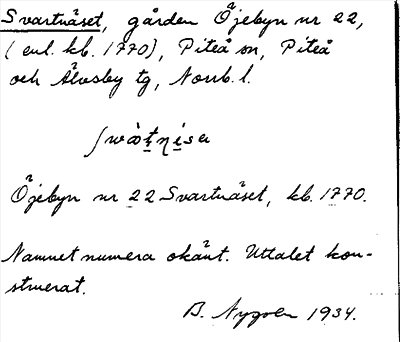 Svartnäset, gården Öjebyn nr 22,
(enl. kb. 1770), Piteå sn, Piteå
och Älvsby tg, Norrb. l.
Öjebyn nr 22 Svartnäset, kb. 1770.
Namnet numera okänt. Uttalet kon-
struerat.
B. Nygren 1934.